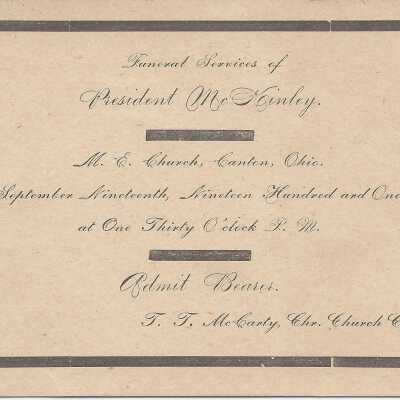 Funeral Services of
President McKinley.
M. E. Church, Canton, Ohio.
September Nineteenth, Nineteen Hundred and One
at One Thirty O'clock P. M.
Admit Bearer.
T. T. McCarty, Chr. Church C